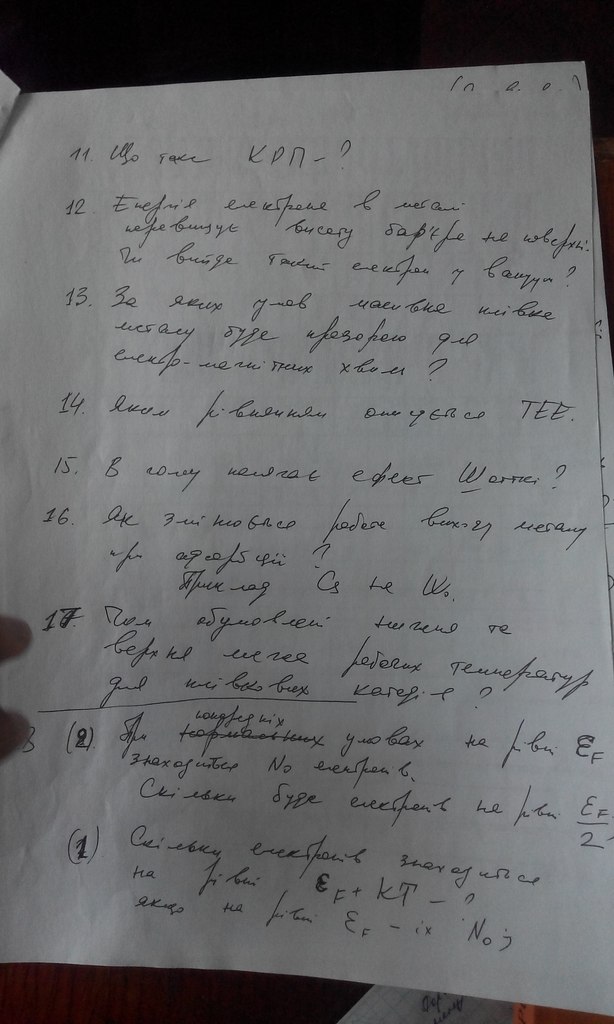 11. Що таке КРП - ?
12. Енергія електрона в металі
перевищує висоту бар'єра на поверхні.
Чи вийде такий електрон у вакуум?
13. За яких умов масивна плівка
металу буде прозорою для
електро-магнітних хвиль?
14. Яким рівнянням описується ТЕЕ.
15. В чому полягає ефект Шоткі?
16. Як змінюється робота виходу металу
при адсорбції?
Приклад Cs на W.
17. Чим обумовлені нижня та
верхня межа робочих температур
для плівкових катодів?
(2). При попередніх умовах на рівні ε_F
знаходиться N₀ електронів.
Скільки буде електронів на рівні ε_F/2
(1) Скільки електронів знаходиться
на рівні ε_F + KT - ?
якщо на рівні ε_F - їх N₀;